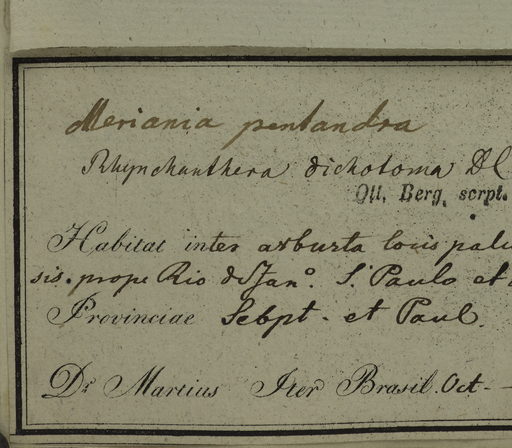 Meriania pentandra
Rhynchanthera dichotoma DC
Ott. Berg. scrpt.
Habitat inter arbusta locis palu
sis. prope Rio d Jan°. S. Paulo et
Provinciae Sebpt - et Paul.
Dr Martius Iter Brasil. Oct -